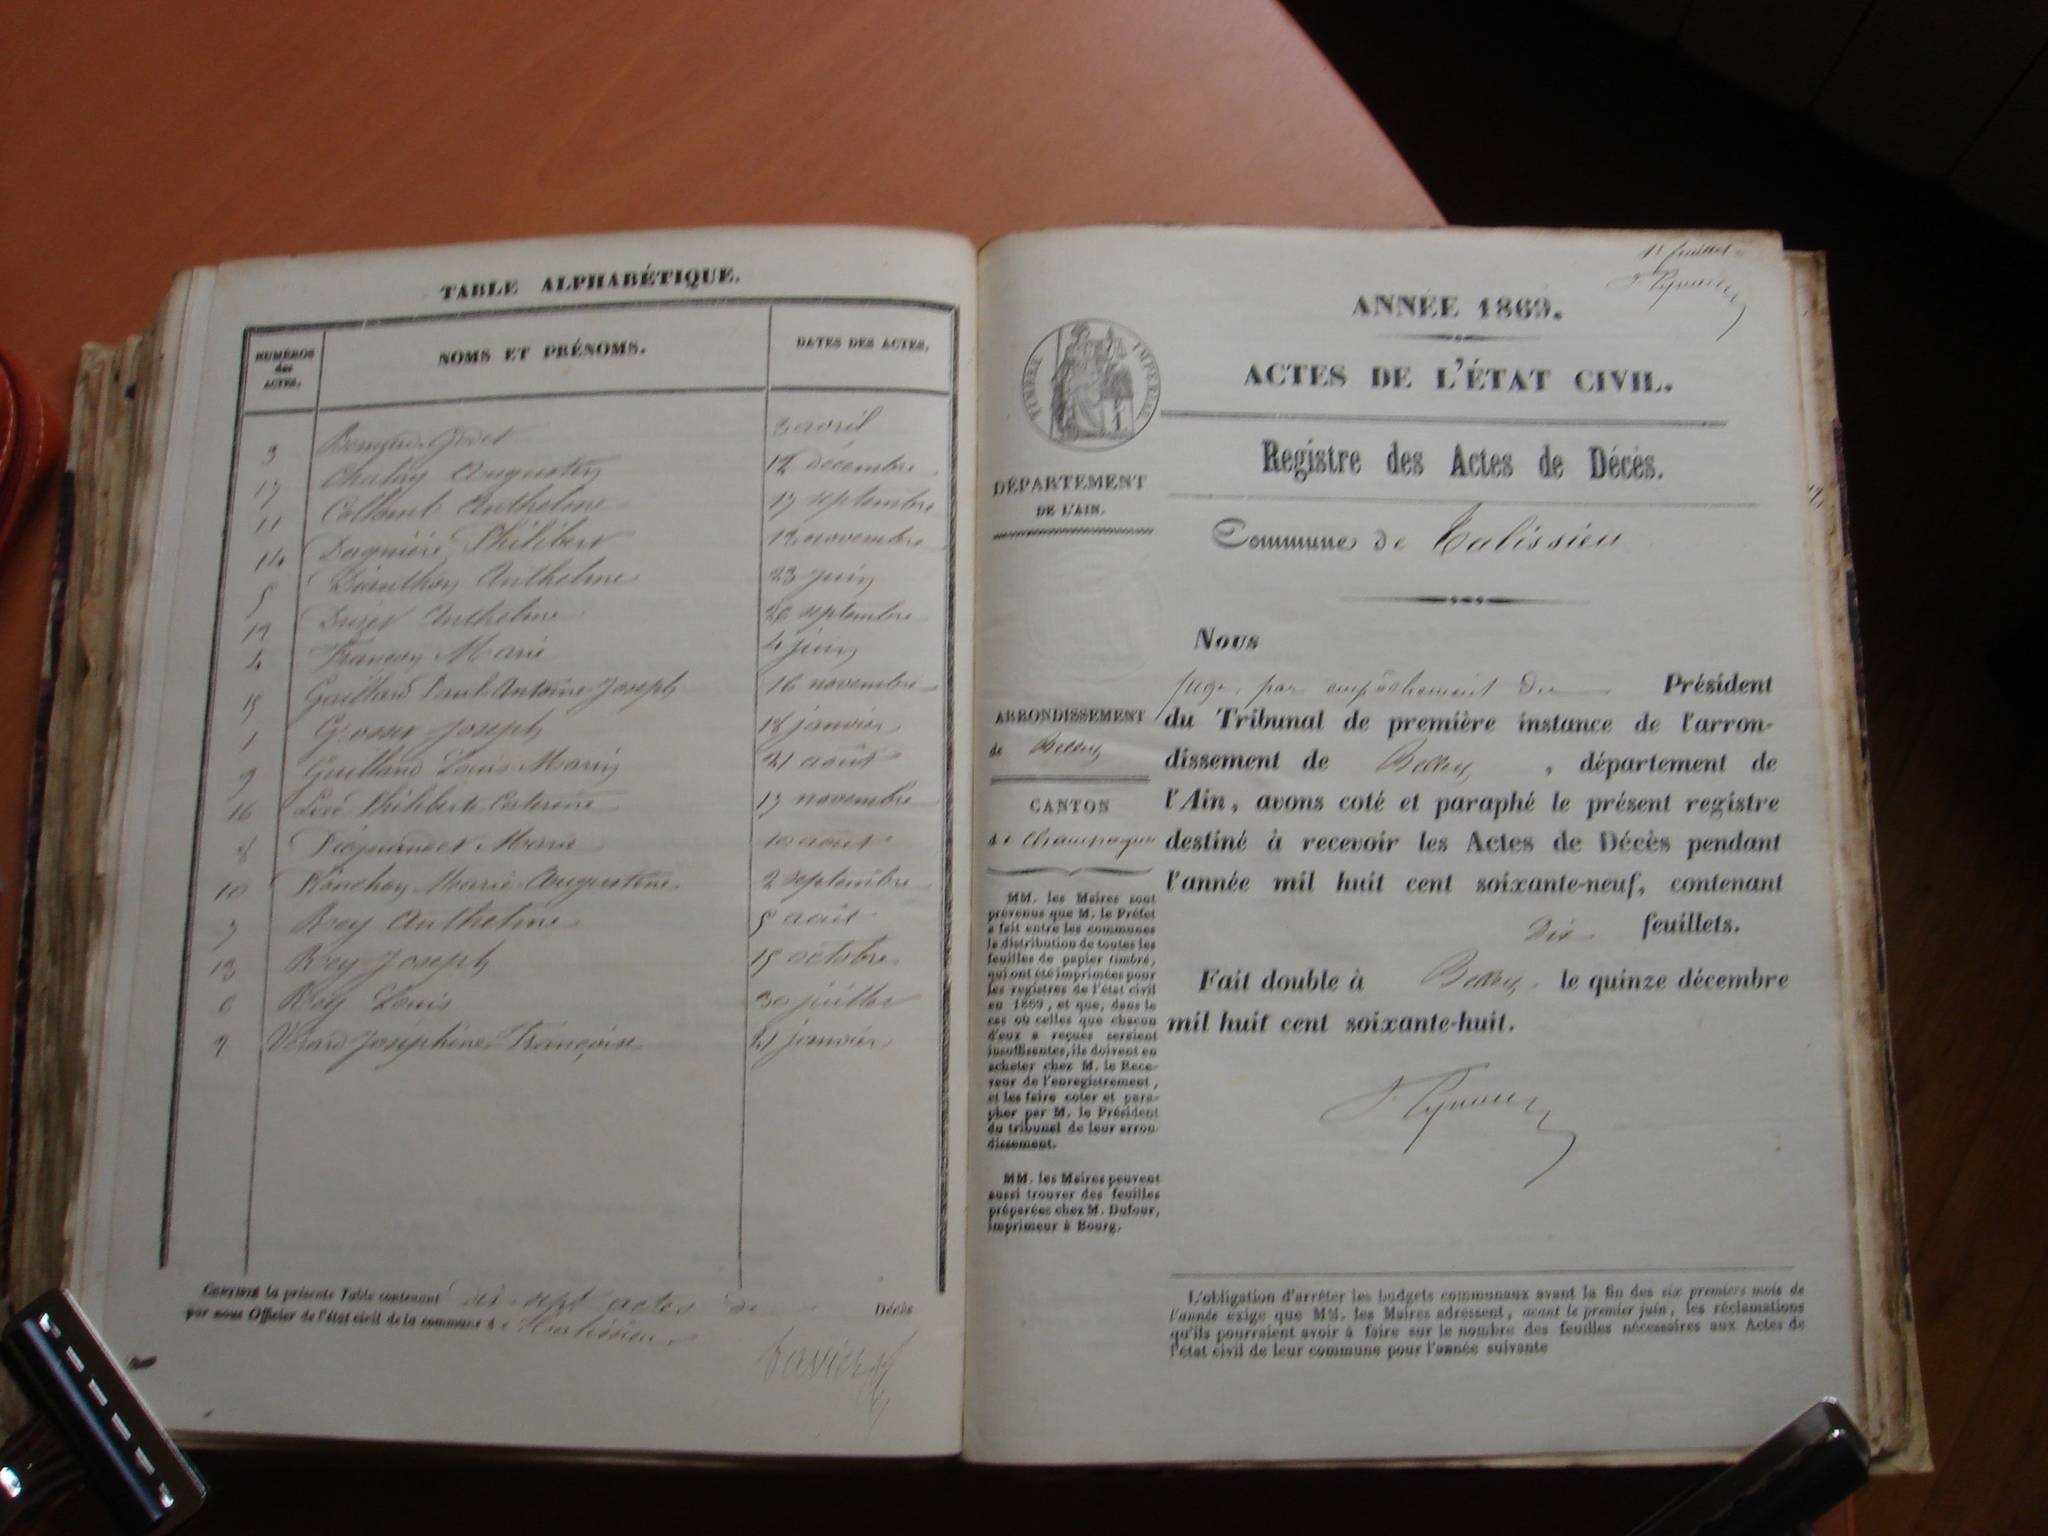 TABLE ALPHABÉTIQUE.
NUMÉROS
des
ACTES.
NOMS ET PRÉNOMS.
DATES DES ACTES.
3 3 avril
17 Chalay Augustin 12 décembre
11 Collomb Anthelme 17 septembre
14 Philibert 12 novembre
5 Anthelme 23 juin
12 Anthelme 26 septembre
4 Françon Marie 4 juin
15 Gaillard Paul Antoine Joseph 16 novembre
1 Grosset Joseph 18 janvier
9 Guilland Louis Marin 21 août
16 Philiberte 17 novembre
8 Marie 10 août
10 Marie Augustine 2 septembre
7 Rey Anthelme 5 août
13 Rey Joseph 15 octobre
6 Rey Louis 30 juillet
2 Vérard Joséphine Françoise 21 janvier
CERTIFIÉ la présente Table contenant dix sept actes de Décès
par nous Officier de l'état civil de la commune de Talissieu
1r feuillet
ANNÉE 1869.
TIMBRE IMPÉRIAL
ACTES DE L'ÉTAT CIVIL.
Registre des Actes de Décès.
DÉPARTEMENT
DE L'AIN.
Commune de Talissieu
ARRONDISSEMENT
de Belley
CANTON
de Champagne
MM. les Maires sont
prévenus que M. le Préfet
a fait entre les communes
la distribution de toutes les
feuilles de papier timbré,
qui ont été imprimées pour
les registres de l'état civil
en 1869, et que, dans le
cas où celles que chacun
d'eux a reçues seraient
insuffisantes, ils doivent en
acheter chez M. le Rece-
veur de l'enregistrement,
et les faire coter et para-
pher par M. le Président
du tribunal de leur arron-
dissement.
MM. les Maires peuvent
aussi trouver des feuilles
préparées chez M. Dufour,
imprimeur à Bourg.
Nous
juge, par empêchement du Président
du Tribunal de première instance de l'arron-
dissement de Belley, département de
l'Ain, avons coté et paraphé le présent registre
destiné à recevoir les Actes de Décès pendant
l'année mil huit cent soixante-neuf, contenant
dix feuillets.
Fait double à Belley, le quinze décembre
mil huit cent soixante-huit.
L'obligation d'arrêter les budgets communaux avant la fin des six premiers mois de
l'année exige que MM. les Maires adressent, avant le premier juin, les réclamations
qu'ils pourraient avoir à faire sur le nombre des feuilles nécessaires aux Actes de
l'état civil de leur commune pour l'année suivante